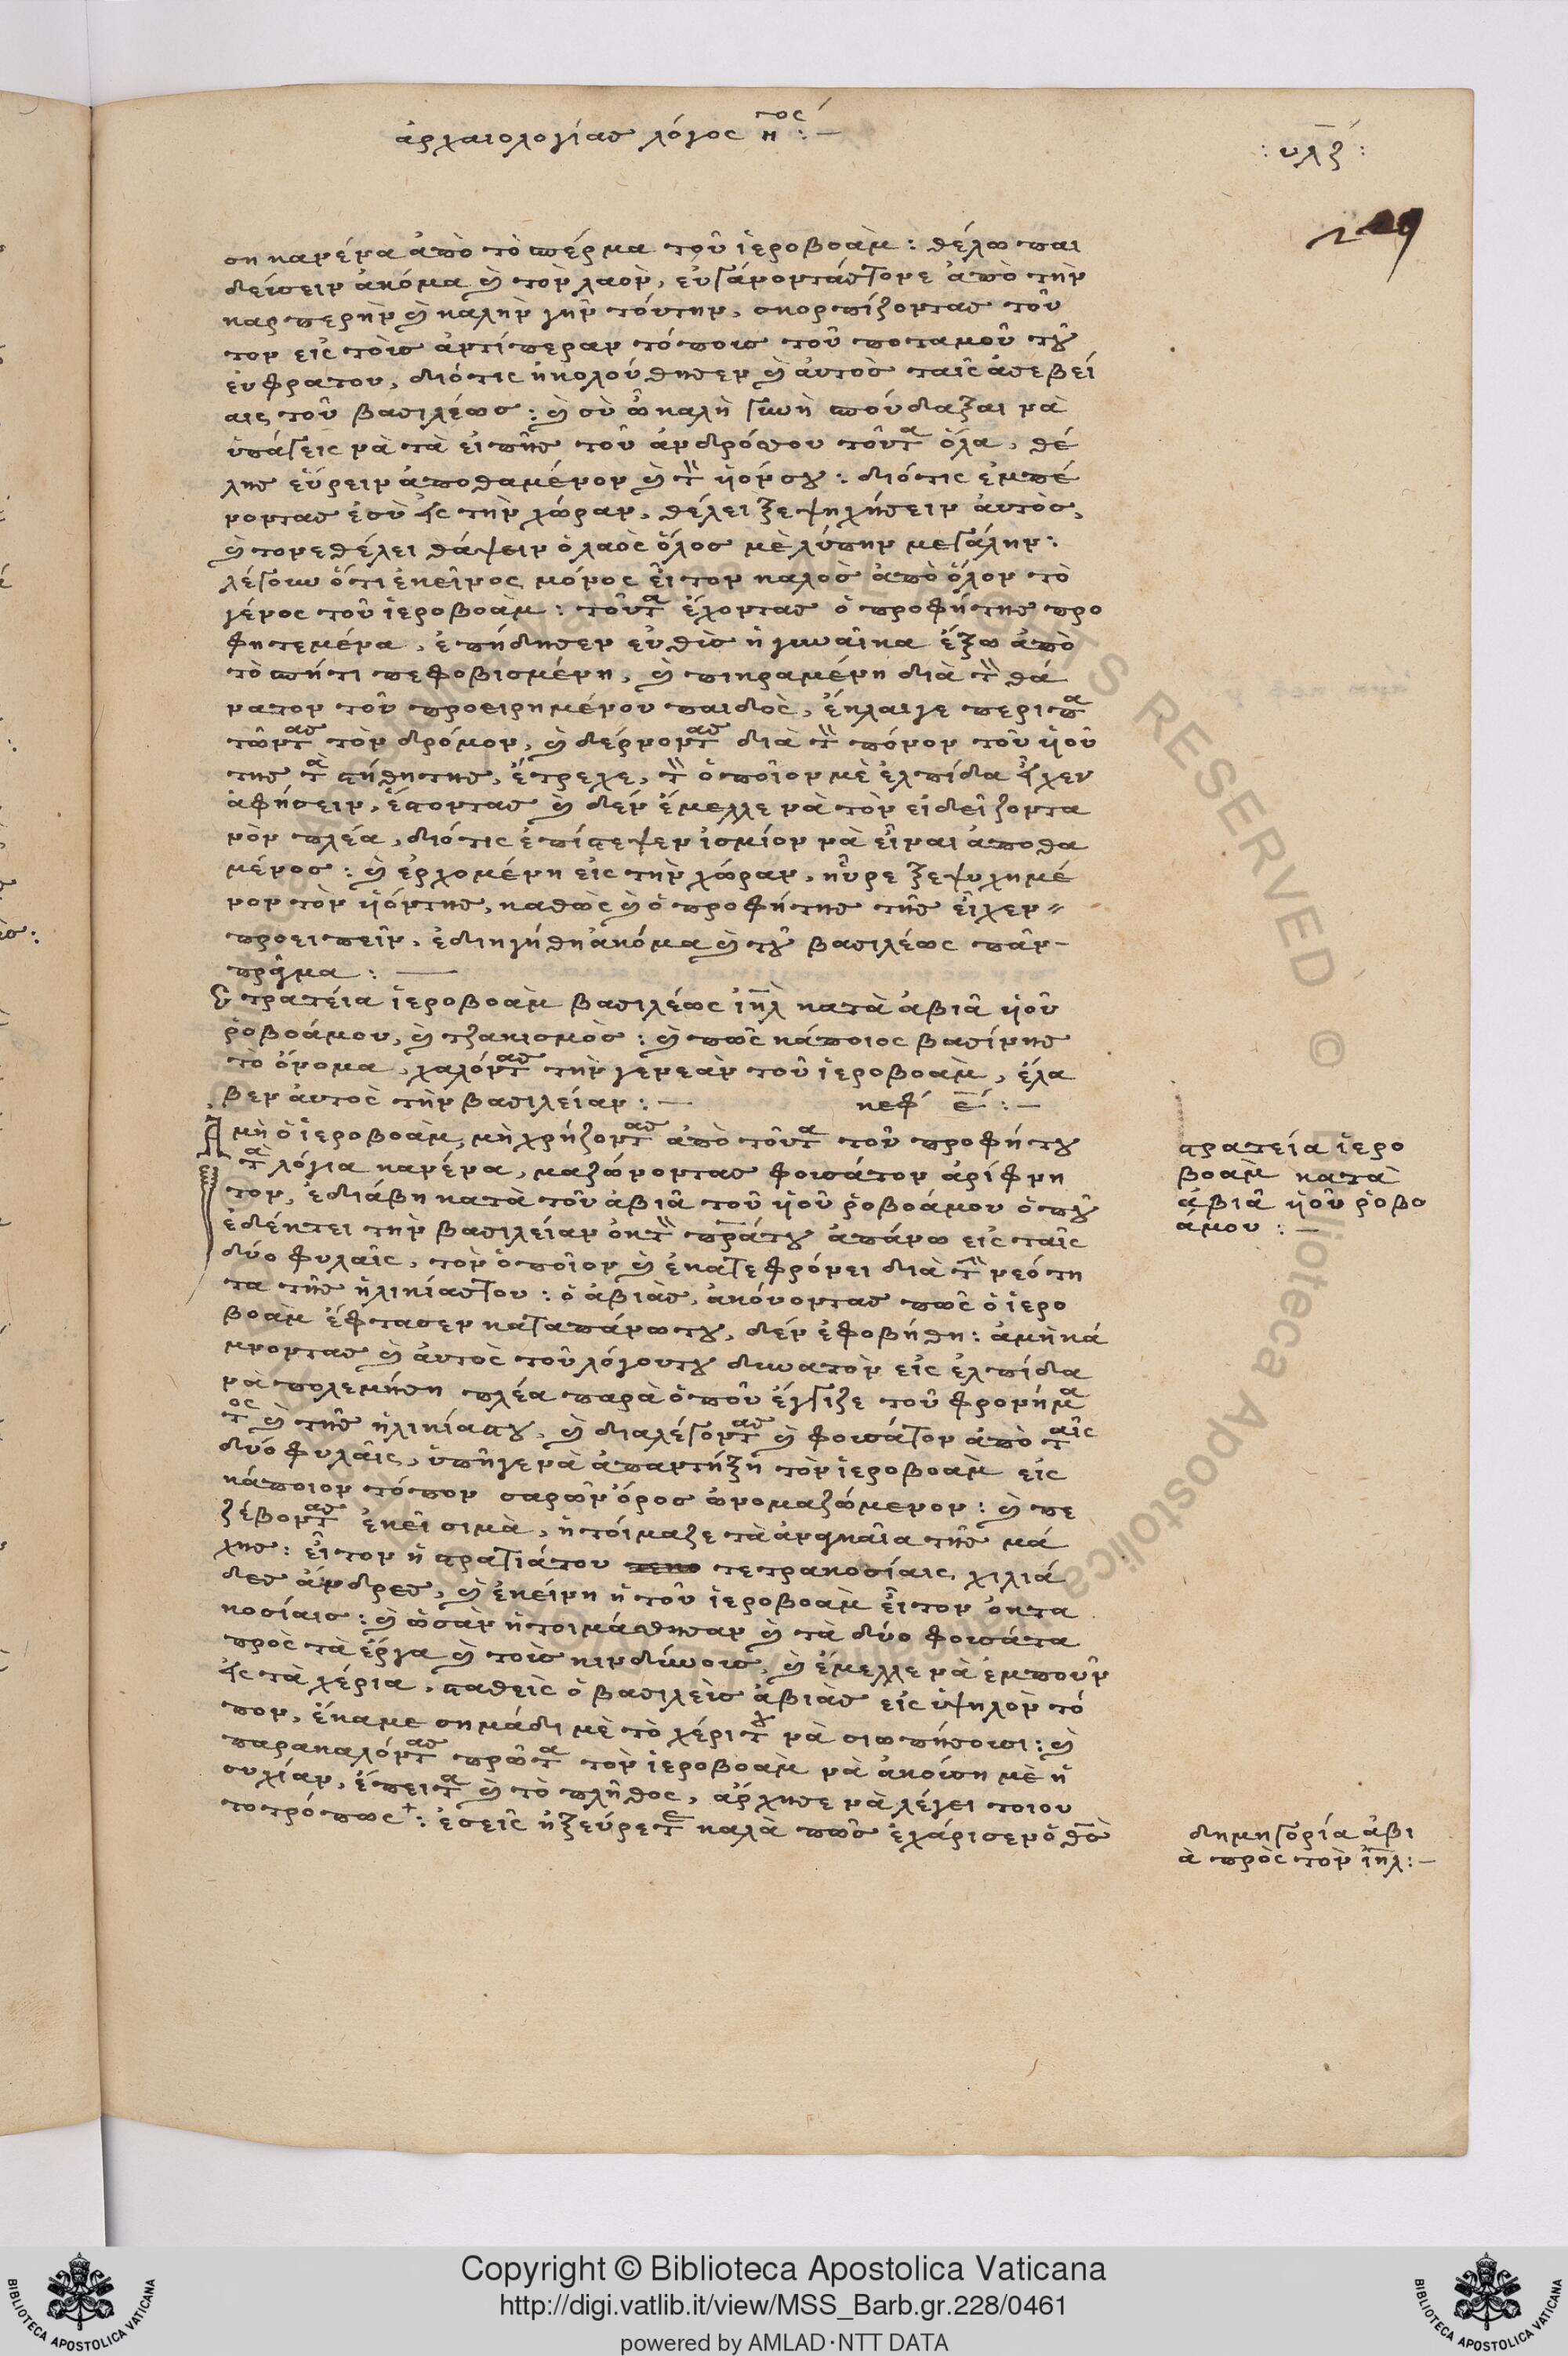 ἀρχαιολογίασ λόγος η^ος :—
: υλζ :
229
ση κανένα ἀπὸ τὸ σπέρμα τοῦ ἱεροβοὰμ : θέλω παι
δεύσειν ἀκόμα ϗ τὸν λαον, εὐγάνοντάστονε ἀπὸ τὴν
καρπερὴν ϗ καλὴν γῆν τούτην, σκορπίζοντασ τοῦ
τον εἰς τοὺσ ἀντίπεραν τόπουσ τοῦ ποταμοῦ τȣ͂
ἐυφρατου, διότις ἠκολούθησεν ϗ ἀυτὸσ ταῖς ἀσεβεί
αις τοῦ βασιλέωσ : ϗ σὺ ὦ καλὴ γυνὴ σπούδαξαι νὰ
ὑπάγεις νὰ τὰ εἰπῆσ τοῦ ἀνδρόσου τοῦτα ὅλα, θέ
λησ εὕρειν ἀποθαμένον ϗ τὸν ὑιόνσȣ : διότις ἐμπέ
νοντασ ἐσὺ εἰς τὴν χώραν, θέλει ξεψυχήσειν ἀυτὸσ,
ϗ τονεθέλει θάψειν ὁ λαὸς ὅλοσ μὲ λύπην μεγάλην :
λέγουν ὅτι ἐκεῖνος μόνος εἶτον καλοσ ἀπὸ ὅλον τὸ
γένος τοῦ ἱεροβοὰμ : τοῦτα ἔχοντασ ὁ προφήτησ προ
φητεμένα, ἐπήδησεν εὐθὺσ ἡ γυναῖκα ἔξω ἀπὸ
τὸ σπήτι πεφοβισμένη, ϗ πικραμένη διὰ τὸν θά
νατον τοῦ προειρημένου παιδὸς, ἔκλαιγε περιπα
τῶντασ τὸν δρόμον, ϗ δέρνοντασ διὰ τὸν πόνον τοῦ ὑιοῦ
τησ τὰ στήθητησ, ἔτρεχε, τὸν ὁποῖον μὲ ἐλπίδα εἶχεν
ἀφήσειν, ἔστοντασ ϗ δὲν ἔμελλε νὰ τὸν εἰδεῖ ζοντα
νὸν πλέα, διότις ἐπίστεψεν ἰσμίον νὰ εἶναι ἀποθα
μένοσ : ϗ ἐρχομένη εἰς τὴν χώραν, ηὗρε ξεψυχημέ
νον τὸν ὑιόντησ, καθὼς ϗ ὁ προφήτησ τῆσ εἶχεν
προειπεῖν, ἐδιηγήθη ἀκόμα ϗ τȣ͂ βασιλέως πᾶν
πρᾶγμα : —
Στρατεία ἱεροβοὰμ βασιλέως ἰηλ κατὰ ἀβιᾶ ὑιοῦ
ῥοβοάμου, ϗ τζακισμὸσ : ϗ πῶς κάποιος βασίνησ
τὸ ὄνομα, χαλόντασ τὴν γενεὰν τοῦ ἱεροβοὰμ, ἔλα
βεν ἀυτὸς τὴν βασιλείαν : — κεφ ε : —
Ἀμὴ ὁ ἱεροβοὰμ, μὴ χρήζοντασ ἀπὸ τοῦτα τοῦ προφήτȣ
τὰ λόγια κανένα, μαζώνοντασ φουσάτον ἀρίφνη
τον, ἐδιάβη κατὰ τοῦ ἀβιᾶ τοῦ ὑιοῦ ῥοβοάμου ὁπȣ͂
ἐδέητει τὴν βασιλείαν ὀκτὸν πράτȣ ἀπάνω εἰς ταῖς
δύο φυλαῖς, τὸν ὁποῖον ϗ ἐκατεφρόνει διὰ τὴν νεότη
τα τῆσ ἡλικίαστου : ὁ ἀβιὰσ, ἀκόυοντασ πῶς ὁ ἱερο
βοὰμ ἔφτασεν καταπάνωτȣ, δὲν ἐφοβήθη : ἀμὴ κά
μνοντασ ϗ ἀυτὸς τοῦ λόγουτȣ δυνατὸν εἰς ἐλπίδα
νὰ πολεμήση πλέα παρὰ ὁποῦ ἔγγιζε τοῦ φρονήμα
τος ϗ τῆσ ἡλικίαστȣ, ϗ διαλέγοντασ ϗ φουσάτον ἀπὸ ταῖς
δύο φυλαῖς, ὑπῆγε νὰ ἀπαντήξη τὸν ἱεροβοὰμ εἰς
κάποιον τόπον σαρῶν ὄροσ ὀνομαζώμενον : ϗ πε
ζέβοντασ ἐκεῖ σιμὰ, ἡτόιμαζε τὰ ἀνagκαῖα τῆσ μά
χησ : εἶτον ἡ στρατιάτου τετρακοσίαις χιλιά
δεσ ἄνδρεσ, ϗ ἐκείνη ἡ τοῦ ἱεροβοὰμ εἶτον ὀκτα
κοσίαισ : ϗ ὡσὰν ἡτοιμάσθησαν ϗ τὰ δύο φουσάτα
πρὸς τὰ ἔργα ϗ τοὺσ κινδύνουσ, ϗ ἔμελλε νὰ ἐμποῦν
εἰς τὰ χέρια, σταθεὶς ὁ βασιλεὺσ ἀβιὰσ εἰς ὑψηλὸν τό
πον, ἔκαμε σημάδι μὲ τὸ χέριτȣ νὰ σιωπήσουσι : ϗ
παρακαλόντασ πρῶτα τὸν ἱεροβοὰμ νὰ ἀκούση μὲ ἡ
συχίαν, ἔπειτα ϗ τὸ πλῆθος, ἄρχησε νὰ λέγει τοιου
τοτρόπως+ : ἐσεῖς ἠξεύρετε καλὰ πῶσ ἐχάρισεν ὁ θσ
στρατεία ἱερο
βοὰμ κατὰ
ἀβιᾶ ὑιοῦ ῥοβο
άμου : —
δημηγορία ἀβι
ὰ πρὸς τὸν ἰηλ : —
Copyright © Biblioteca Apostolica Vaticana
http://digi.vatlib.it/view/MSS_Barb.gr.228/0461
powered by AMLAD·NTT DATA
BIBLIOTECA APOSTOLICA VATICANA
BIBLIOTECA APOSTOLICA VATICANA